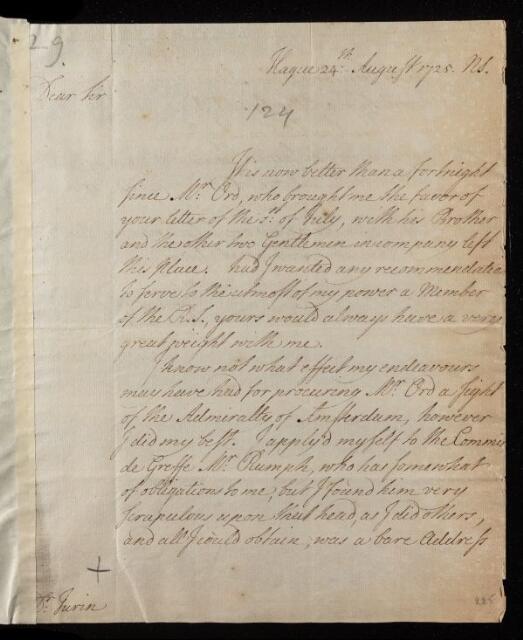 29.
Hague 24.th August 1725. NS.
Dear Sir
124
It is now better than a fortnight
since Mr. Ord, who brought me the favor of
your letter of the of July, with his Brother
and the other two Gentlemen in company left
this Place. had I wanted any recommendation
to serve to the utmost of my power a Member
of the R.S., yours would always have a very
great weight with me.
I know not what effect my endeavours
may have had for procuring Mr. Ord a sight
of the Admiralty of Amsterdam, however
I did my best. I apply'd myself to the Commis
de Greffe Mr. Rumph, who has somewhat
of obligations to me, but I found him very
scrupulous upon that head, as I did others,
and all I could obtain, was a bare Address
+
Dr. Jurin
225